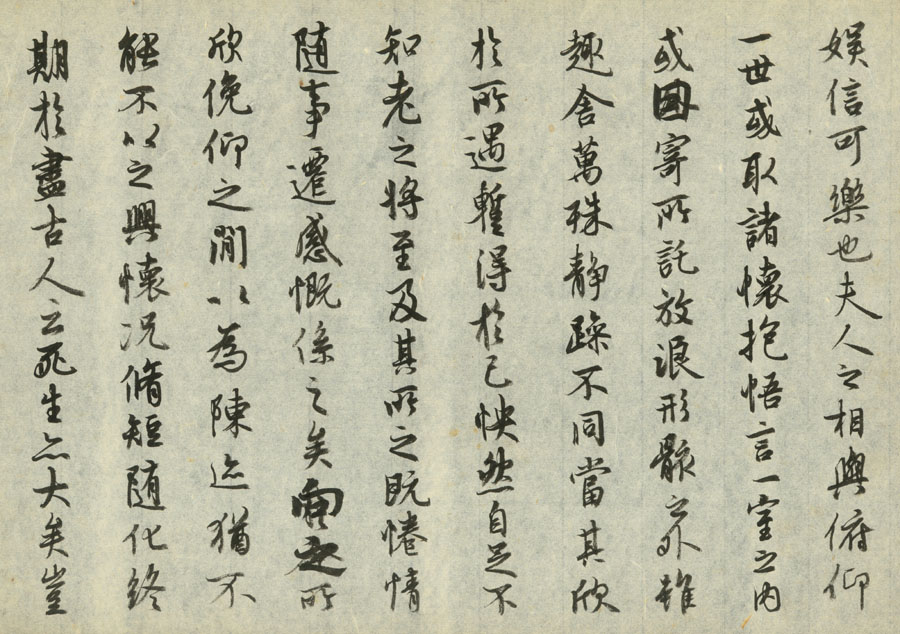 娱信可樂也夫人之相與俯仰
一世或取諸懷抱悟言一室之内
或因寄所託放浪形骸之外雖
趣舍萬殊静躁不同當其欣
於所遇暫得於己怏然自足不
知老之將至及其所之既惓情
随事遷感慨係之矣向之所
欣俛仰之閒以為陳迹猶不
能不以之興懷况脩短随化終
期於盡古人云死生亦大矣豈